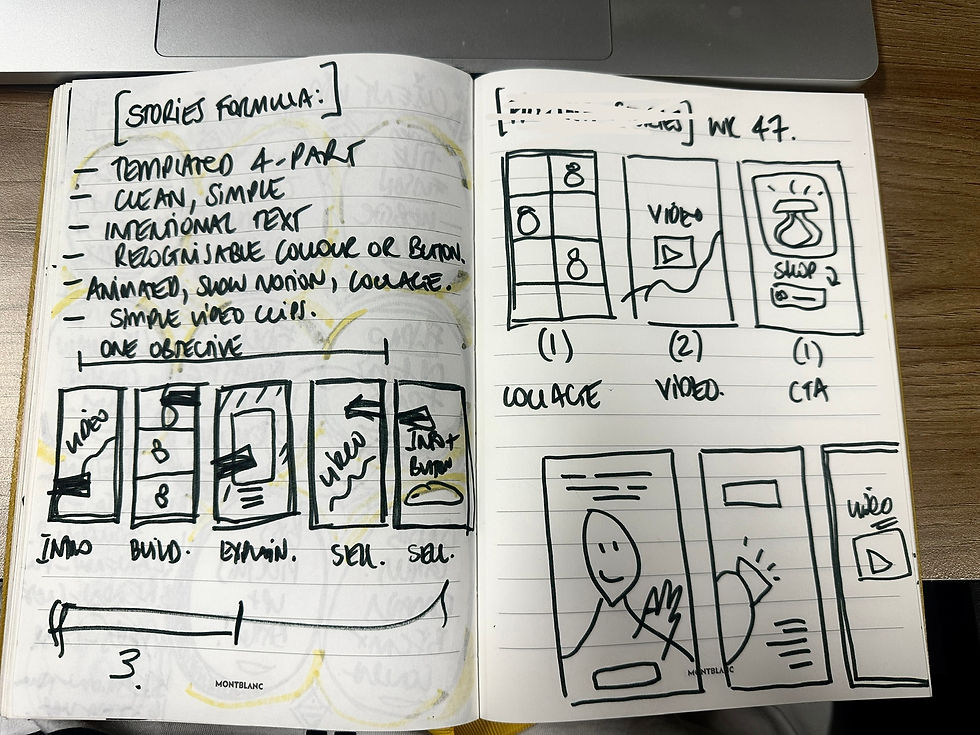 [STORIES FORMULA:]
- TEMPLATED 4-PART
- CLEAN, SIMPLE
- INTENTIONAL TEXT
- RECOGNISABLE COLOUR OR BUTTON.
- ANIMATED, SLOW MOTION, COLLAGE.
- SIMPLE VIDEO CLIPS.
ONE OBJECTIVE
VIDEO
8
8
VIDEO
INFO +
BUTTON
INTRO BUILD. EXPLAIN. SELL. SELL.
3.
MONTBLANC
WK 47.
8
8
8
VIDEO
SHOP
(1) (2) (1)
COLLAGE VIDEO. CTA
VIDEO
MONTBLANC